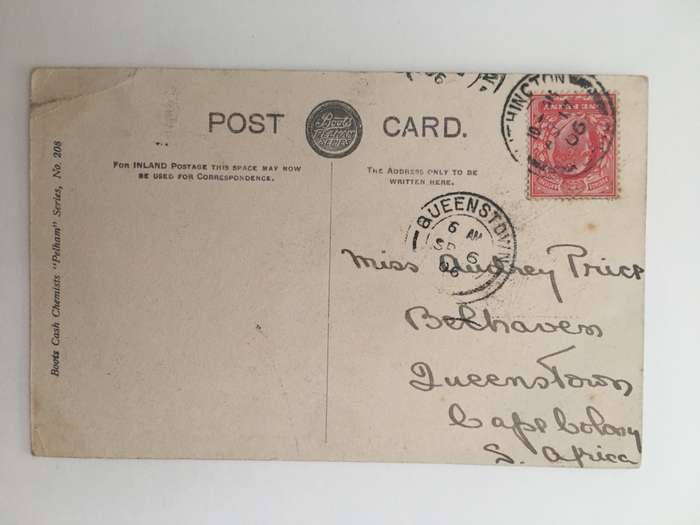 POST CARD.
Boots
PELHAM
SERIES
FOR INLAND POSTAGE THIS SPACE MAY NOW
BE USED FOR CORRESPONDENCE.
THE ADDRESS ONLY TO BE
WRITTEN HERE.
HINGTON
06
ONE PENNY
QUEENSTOWN
6 AM
SP 6
06
Miss Audrey Price
Belhaven
Queenstown
Cape Colony
S. Africa
Boots Cash Chemists "Pelham" Series, No. 208